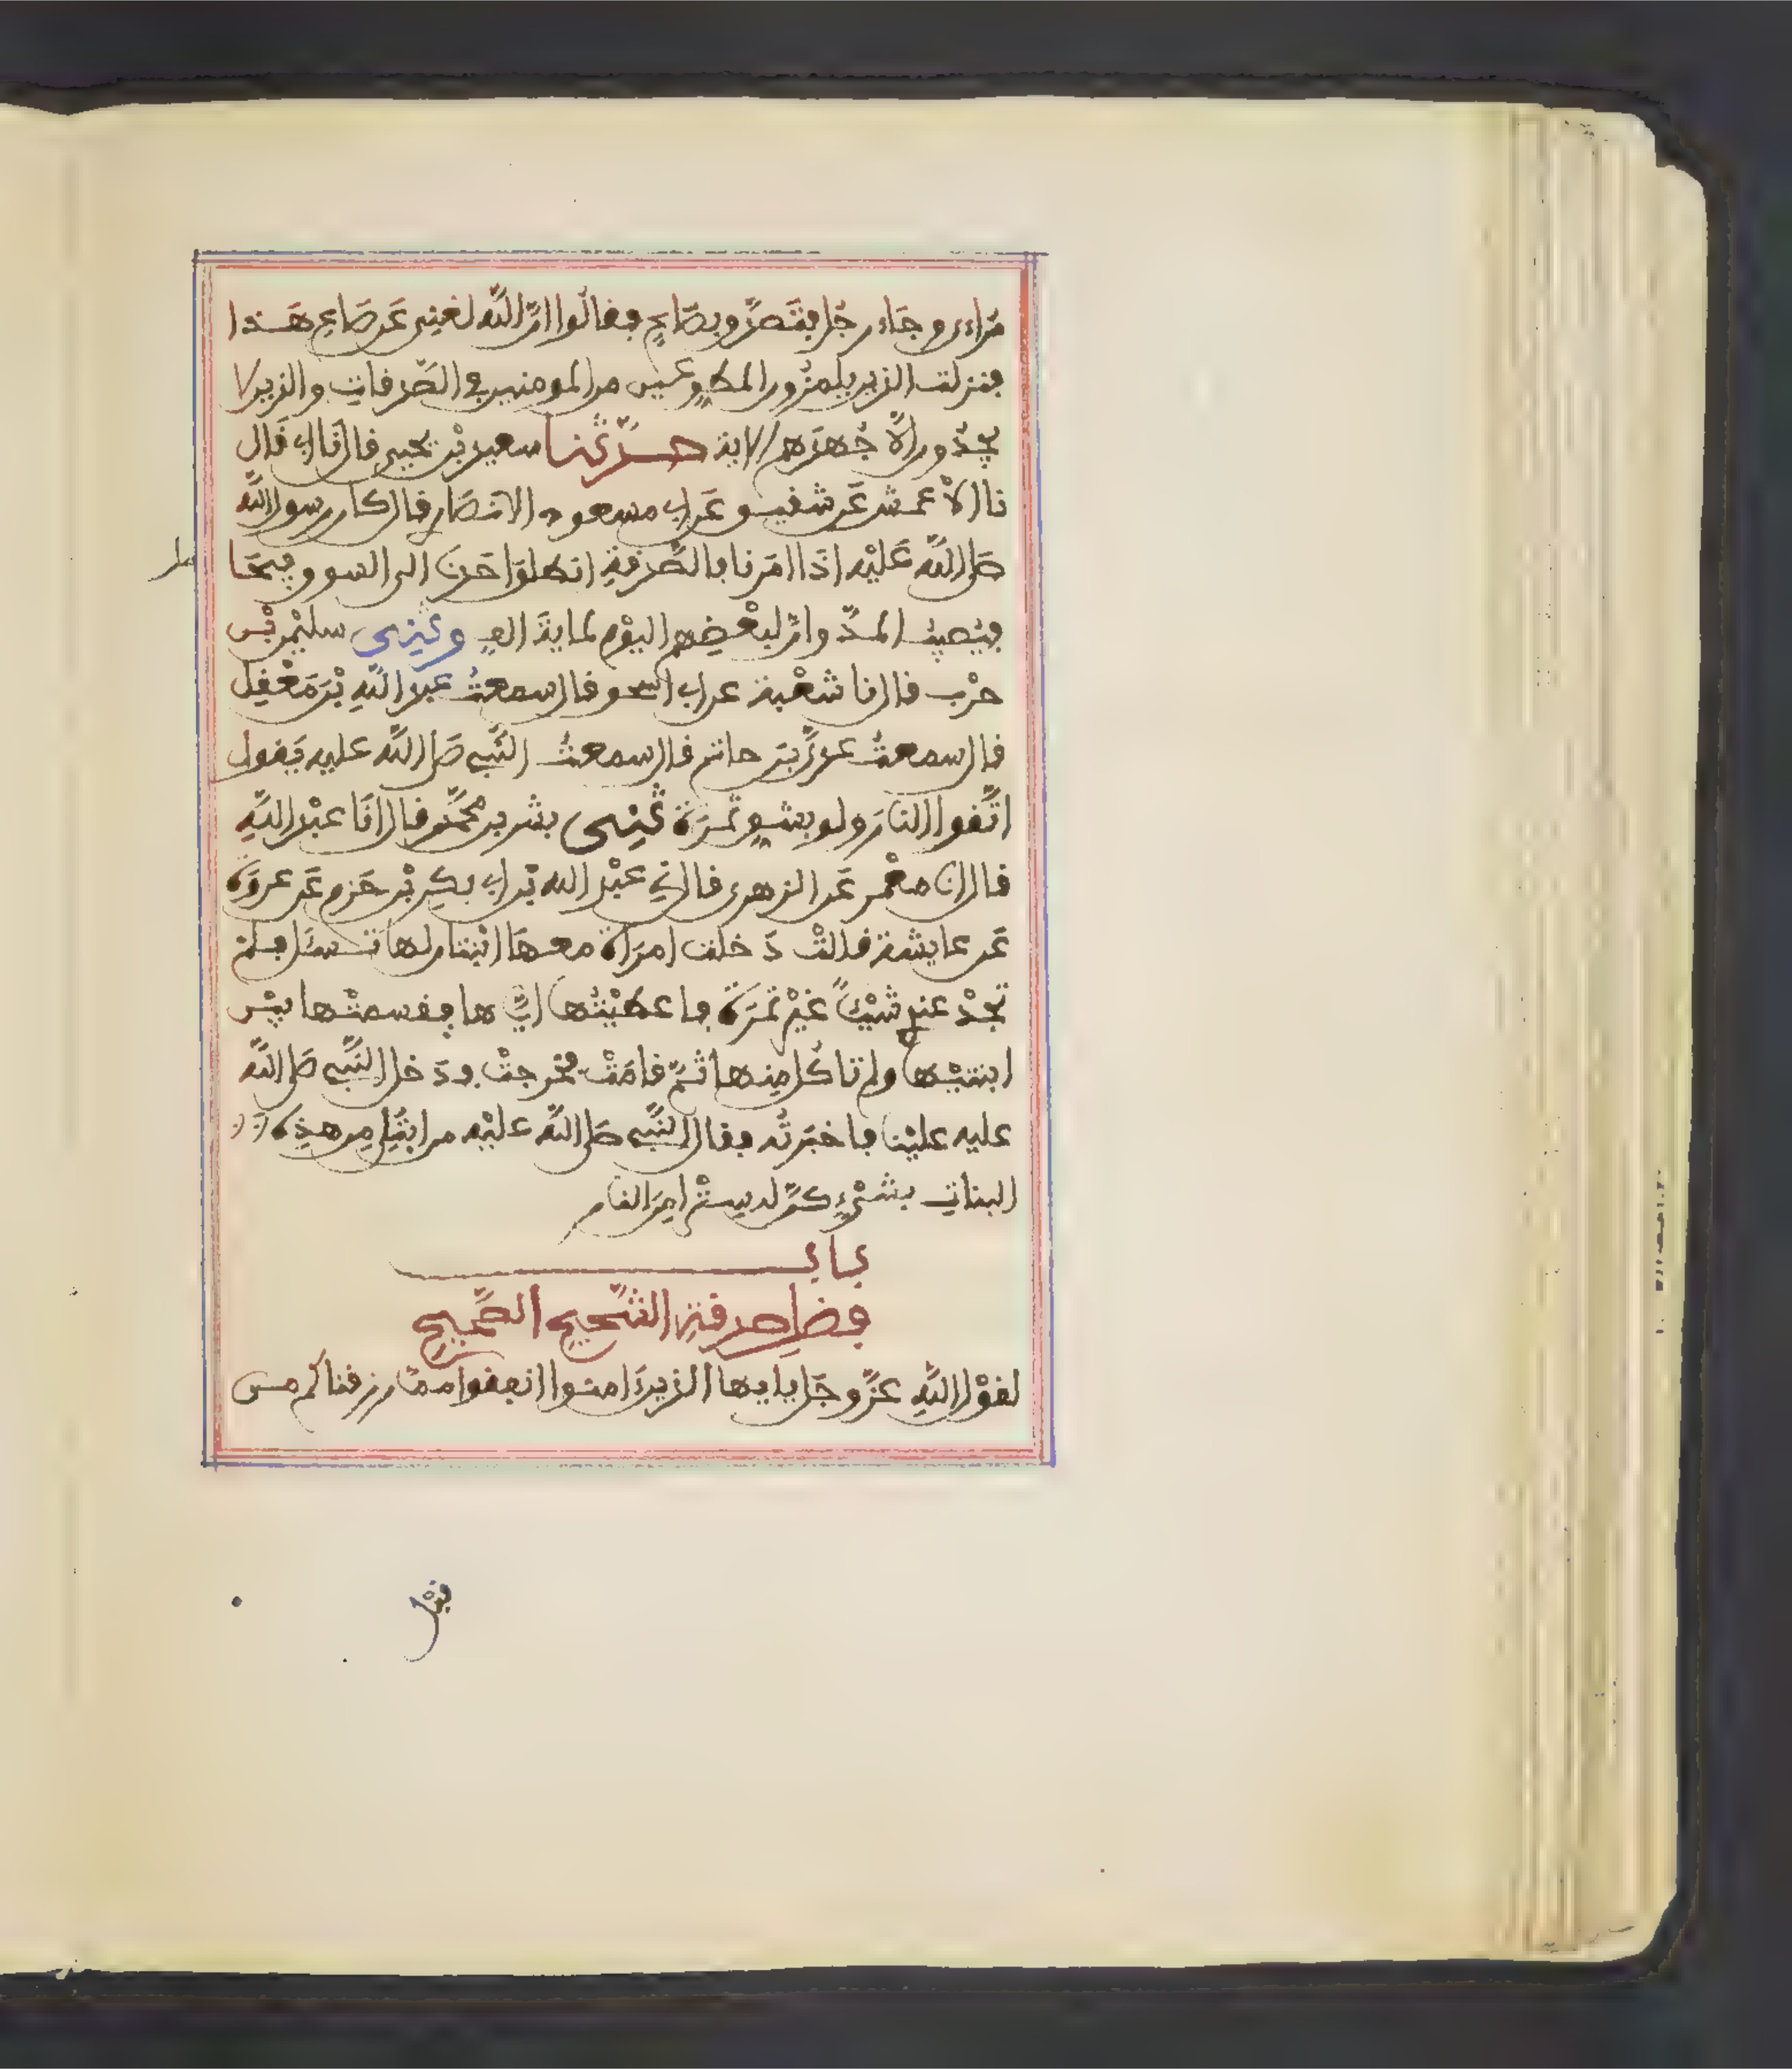 مراءي وجاء رجل فتصدق بصاع فقالوا ان الله لغني عن صاع هذا
فنزلت الذين يلمزون المطوعين من المومنين في الصدقات والذين لا
يجدون الا جهدهم الاية حدثنا سعيد بن يحيى قال نا ابي قال
نا الاعمش عن شقيق عن ابي مسعود الانصاري قال كان رسول الله
صلى الله عليه اذا امرنا بالصدقة انطلق احدنا الى السوق فيحامل
فيصيب المد وان لبعضهم اليوم لماية الف وثني سليمن بن
حرب قال نا شعبة عن ابي اسحق قال سمعت عبد الله بن معقل
قال سمعت عدي بن حاتم قال سمعت النبي صلى الله عليه يقول
اتقوا النار ولو بشق تمرة ثني بشر بن محمد قال انا عبد الله
قال انا معمر عن الزهري قال ني عبد الله بن ابي بكر بن حزم عن عروة
عن عايشة قالت دخلت امراة معها ابنتان لها تسئل فلم
تجد عندي شيئا غير تمرة فاعطيتها اياها فقسمتها بين
ابنتيها ولم تاكل منها ثم قامت فخرجت ودخل النبي صلى الله
عليه علينا فاخبرته فقال النبي صلى الله عليه من ابتلي من هذه
البنات بشيء كن له سترا من النار
باب
فضل صدقة الشحيح الصحيح
لقول الله عز وجل يايها الذين امنوا انفقوا مما رزقناكم من
قبل